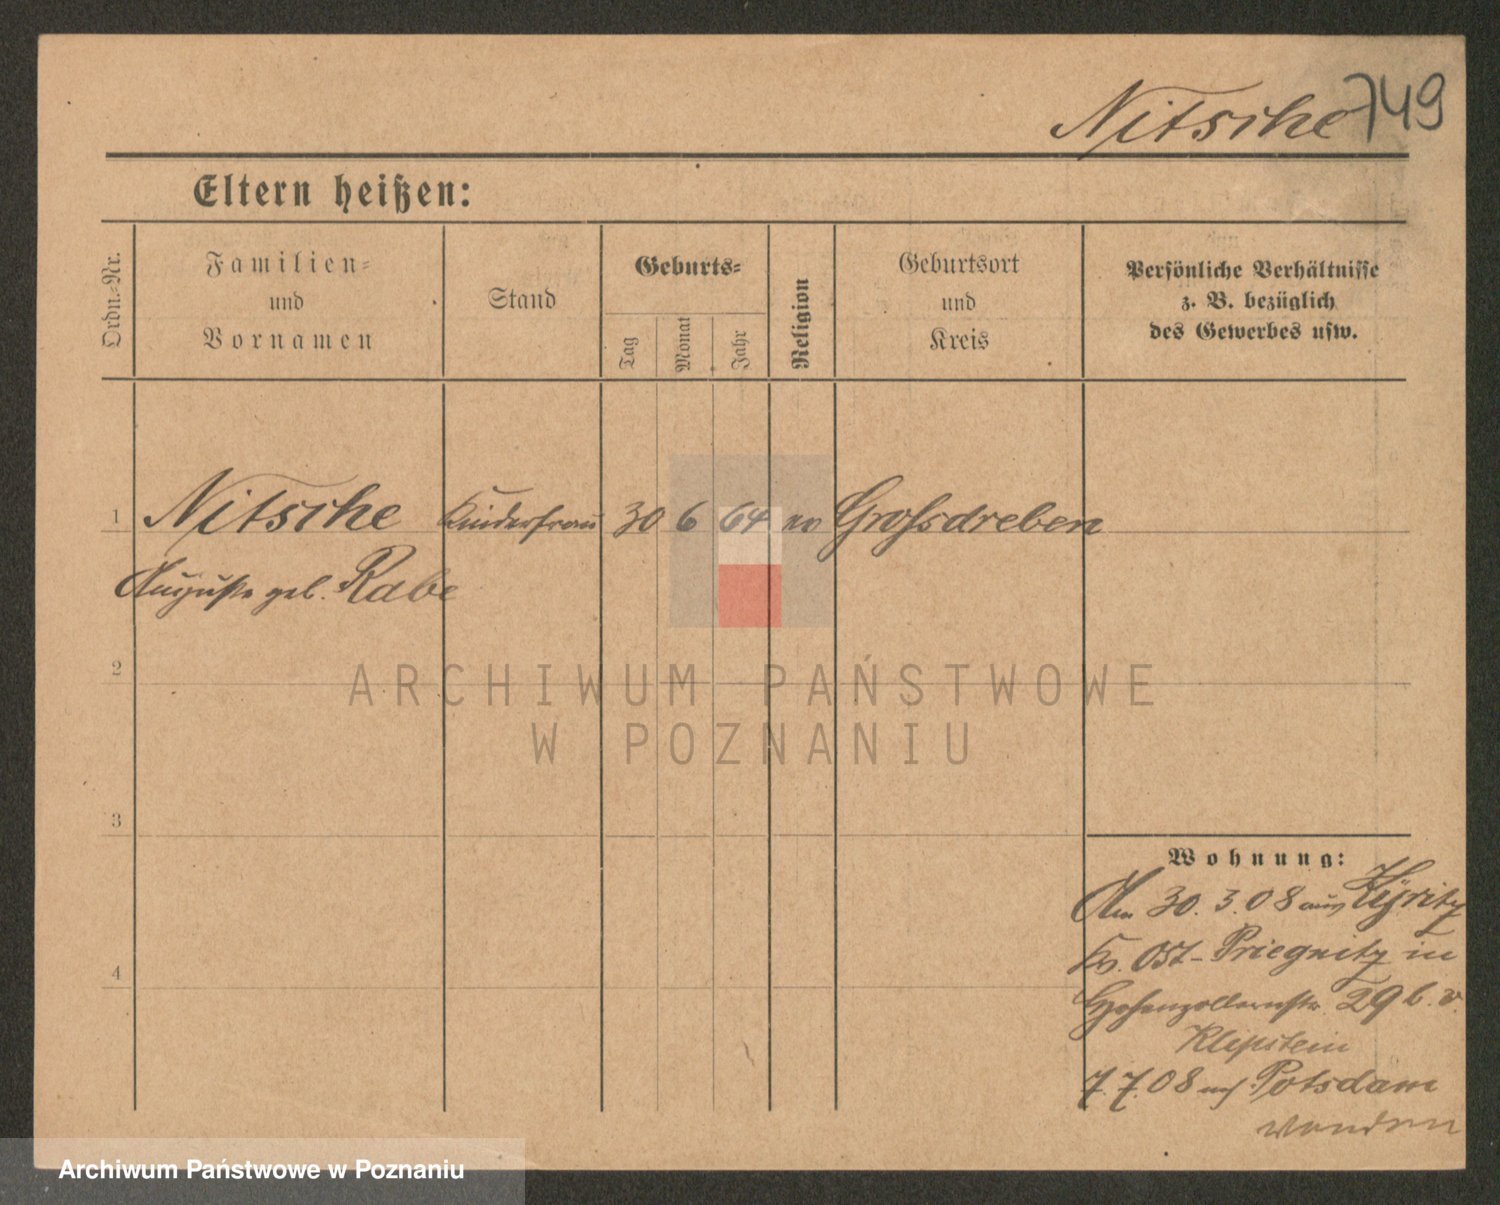 Nitsche 749
Eltern heißen:
Ordn.-Nr.
Familien-
und
Vornamen
Stand
Geburts-
Tag
Monat
Jahr
Religion
Geburtsort
und
Kreis
Persönliche Verhältnisse
z. B. bezüglich
des Gewerbes usw.
1 Nitsche Kinderfrau 30 6 64 ev Grossdreben
Auguste geb. Rabe
2
3
4
ARCHIWUM PAŃSTWOWE
W POZNANIU
Wohnung:
Am 30. 3. 08 aus Kyritz
Kr. Ost-Priegnitz in
Hohenzollernstr. 29 b. v.
Klipstein
7. 7. 08 nach Potsdam
Archiwum Państwowe w Poznaniu